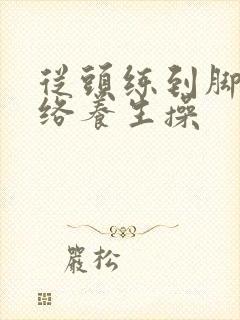 從頭練到脚
络養生操
嚴松